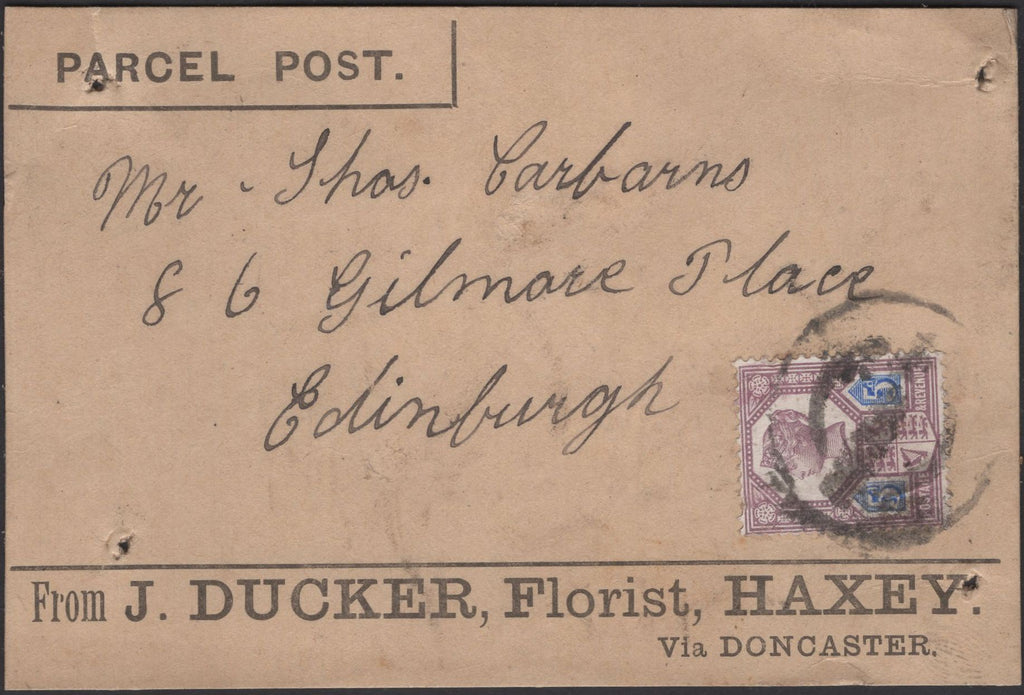 PARCEL POST.
Mr. Thos. Carbarns
86 Gilmore Place
Edinburgh
5
POSTAGE & REVENUE
5
From J. DUCKER, Florist, HAXEY.
Via DONCASTER.